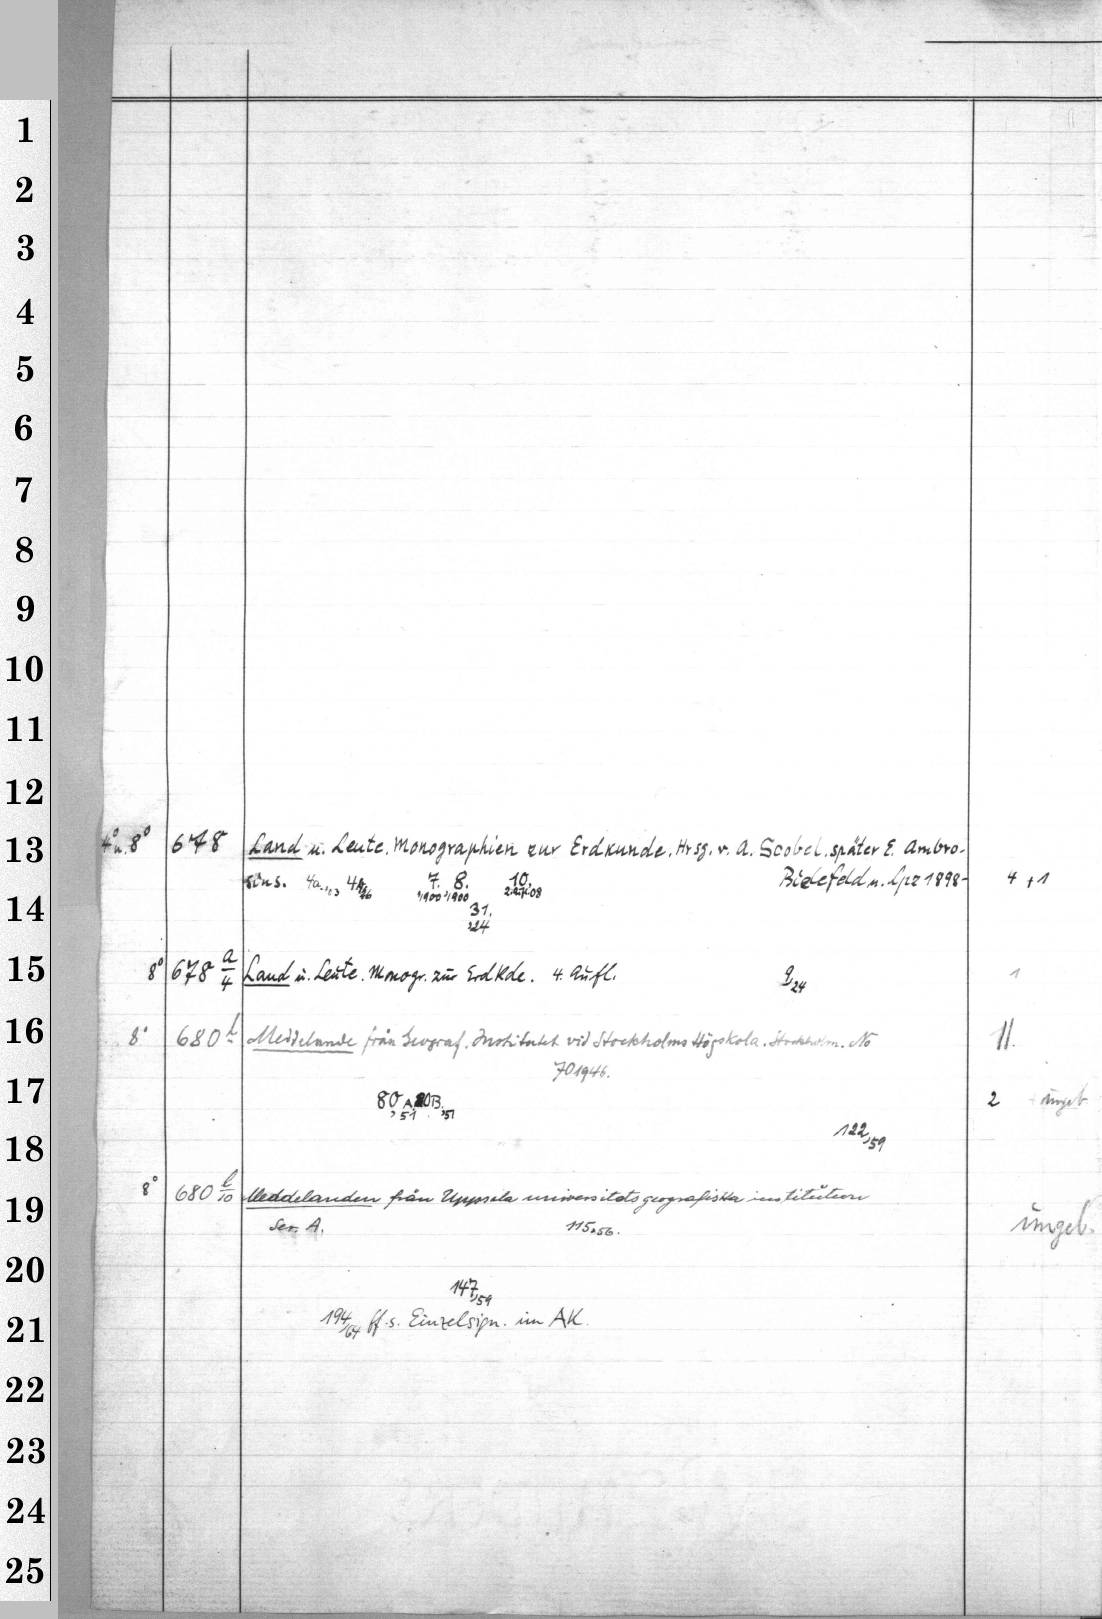 1
2
3
4
5
6
7
8
9
10
11
12
13
4° u. 8° 678 Land u. Leute. Monographien zur Erdkunde. Hrsg. v. A. Scobel, später E. Ambro-
sius. 7. 8. 10. Bielefeld u. Lpz 1898- 4 +1
,1900 ,1900
14
31.
,24
15
8° 678 a/4 Land u. Leute. Monogr. zur Erdkde. 4. Aufl. 9,24 1
16
8° 680 Meddelande från Geograf. Institutet vid Stockholms Högskola. Stockholm. No 11.
70 1946.
17
80 A,51 80B,51 2 ungeb.
18
122,59
19
8° 680 l/10 Meddelanden från Uppsala universitets geografiska institution
Ser. A. 115,56. ungeb.
20
147,59
21
194,64 ff. s. Einzelsign. im AK.
22
23
24
25